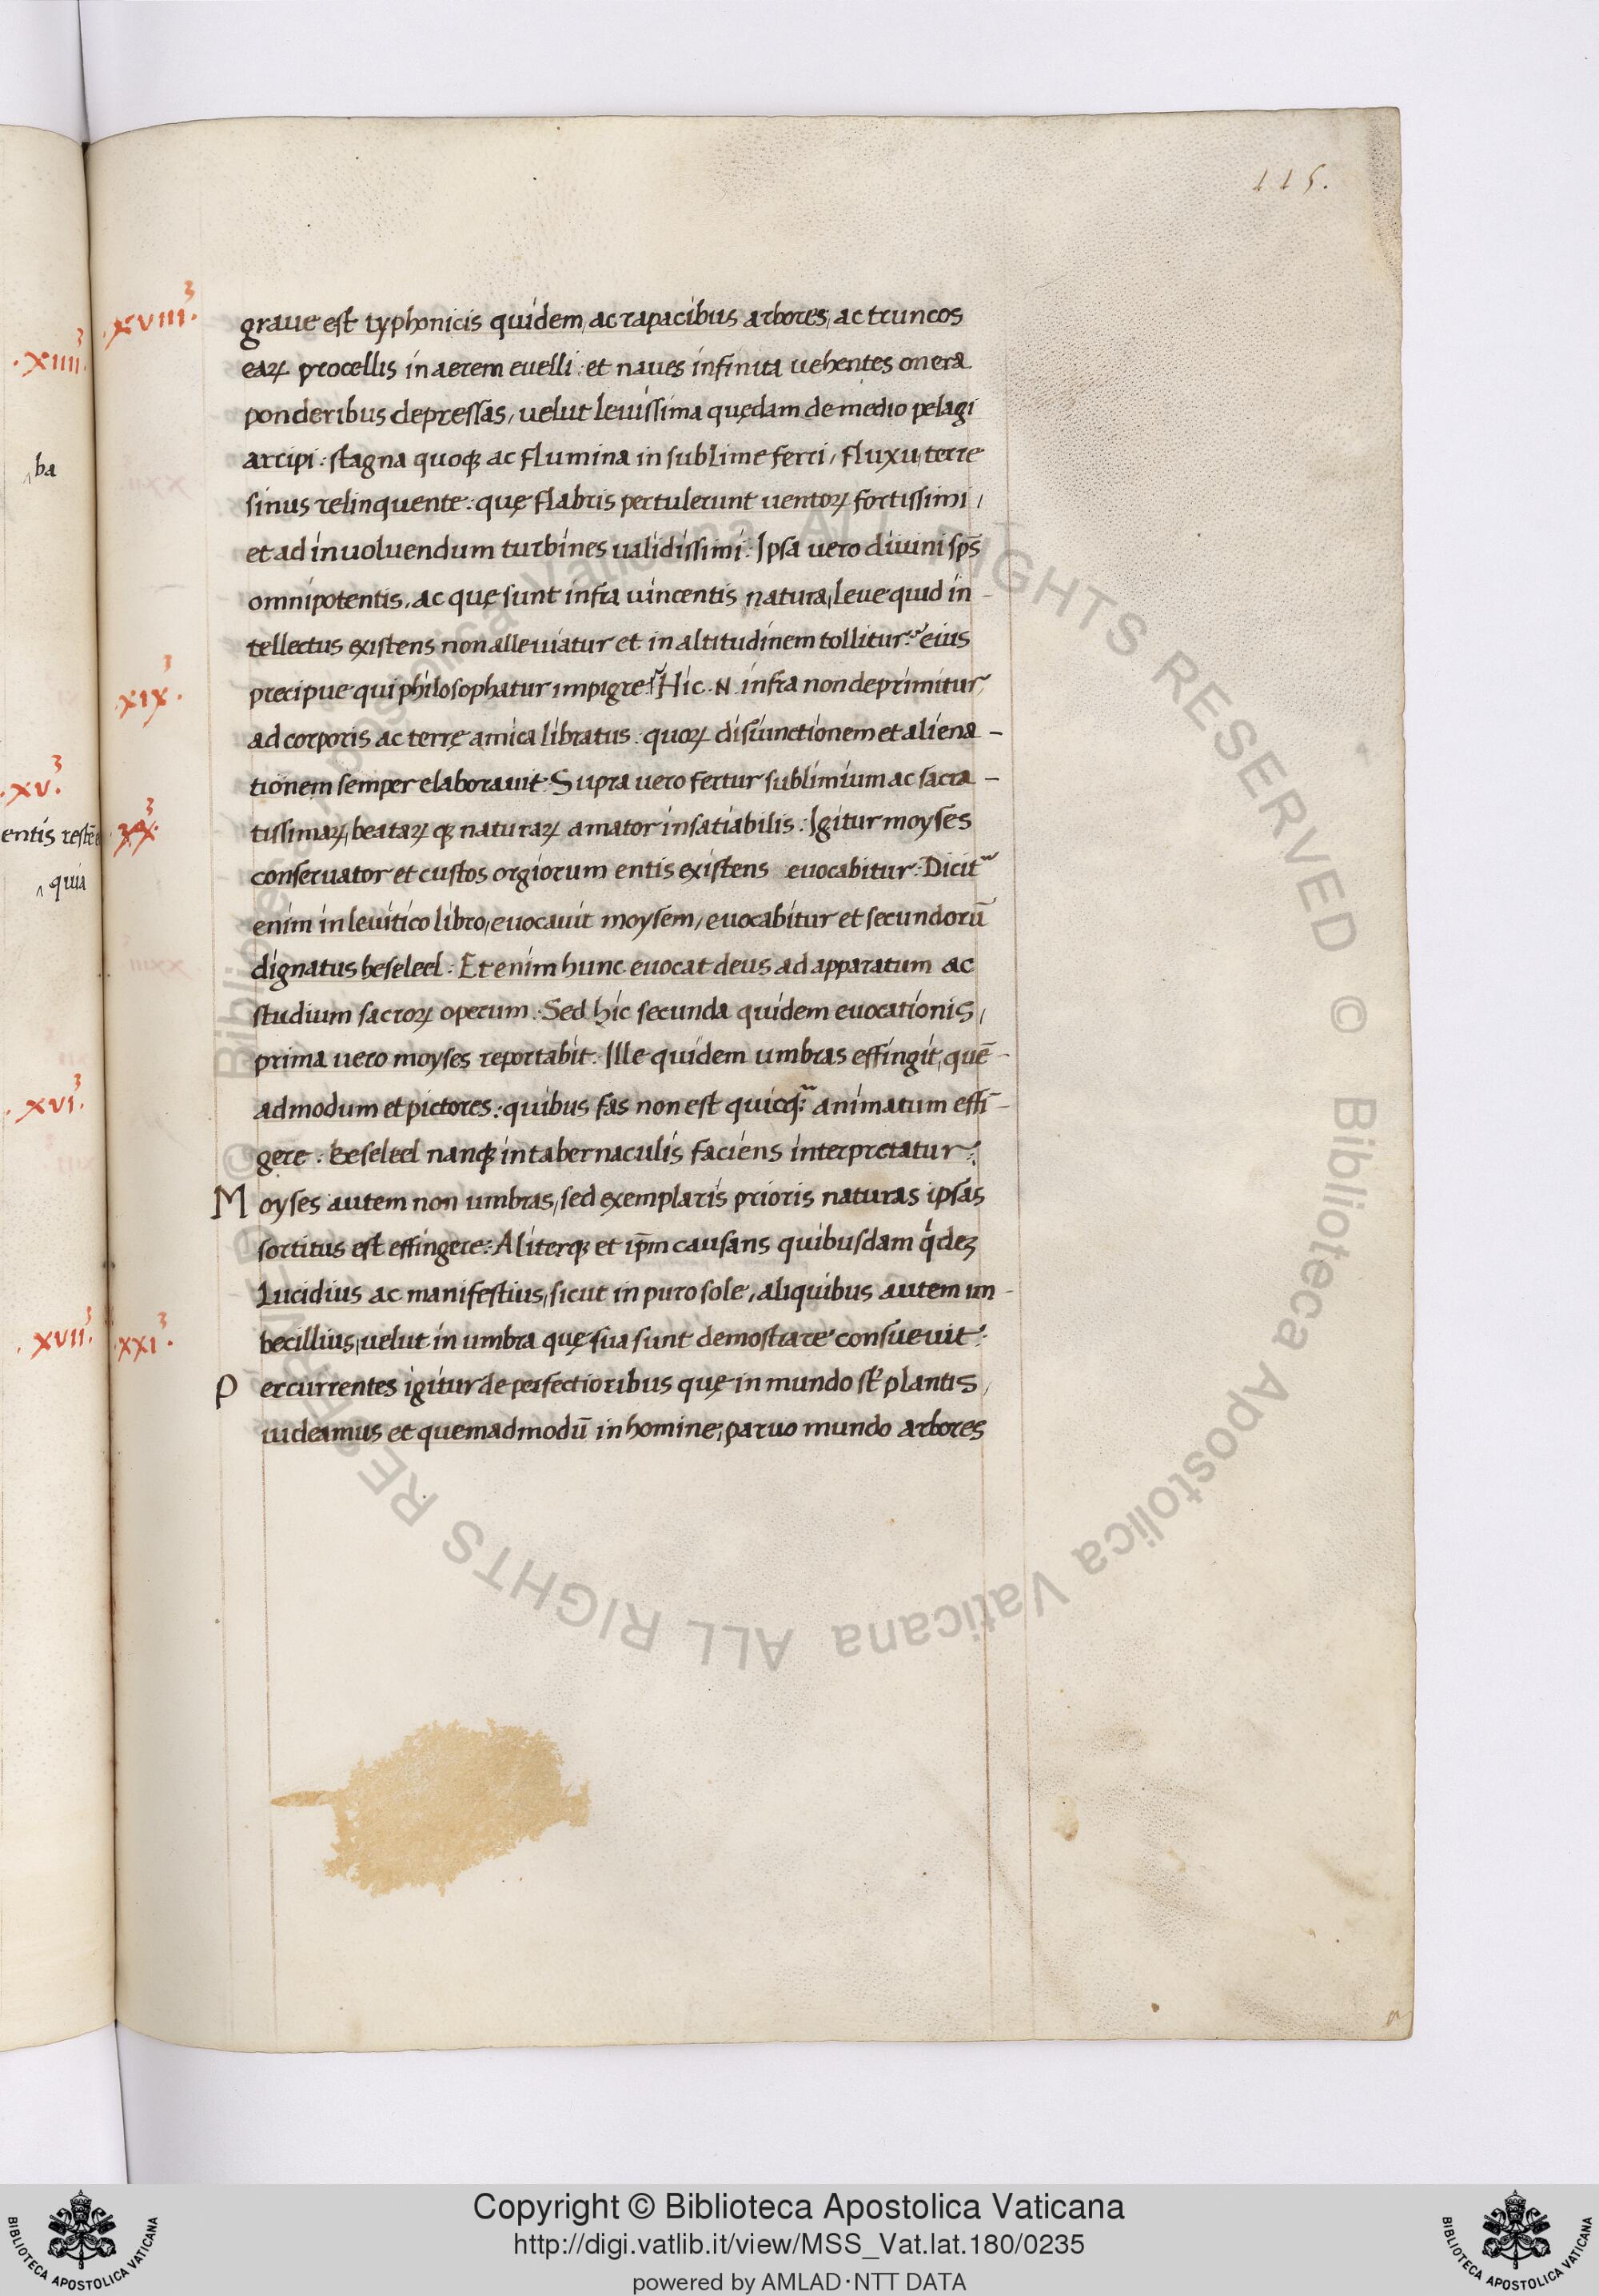 115.
.xviii.3
.xiiii.3
ba
.xix.3
.xv.3
entis
.xx.3
quia
.xvi.3
.xvii.3
.xxi.3
graue est typhonicis quidem, ac rapacibus arbores, ac truncos
eaꝝ procellis in aerem euelli : et naues infinita uehentes onera
ponderibus depressas, uelut leuissima quędam de medio pelagi
arcipi : stagna quoqꝫ ac flumina in sublime ferri, fluxu, terre
sinus relinquente : quę flabris pertulerunt uentoꝝ fortissimi,
et ad inuoluendum turbines ualidissimi : Ipsa uero diuini sp̄s
omnipotentis, ac quę sunt infra uincentis natura, leue quid in
tellectus existens non alleuiatur et in altitudinem tollitur : eius
precipue qui philosophatur impigre : Hic .N. infra non deprimitur,
ad corporis ac terrę amica libratus : quoꝝ disiunctionem et aliena -
tionem semper elaborauit : Supra uero fertur sublimium ac sacra -
tissimaꝝ, beataꝝ qꝫ naturaꝝ amator insatiabilis : Igitur moyses
conseruator et custos orgiorum entis existens euocabitur : Dicit᷑
enim in leuitico libro, euocauit moysem, euocabitur et secundorū
dignatus beseleel : Et enim hunc euocat deus ad apparatum ac
studium sacroꝝ operum : Sed hic secunda quidem euocationis,
prima uero moyses reportabit : Ille quidem umbras effingit, quē -
admodum et pictores : quibus fas non est quicqᷓ animatum effī -
gere : Beseleel nanqꝫ in tabernaculis faciens interpretatur :
Moyses autem non umbras, sed exemplaris prioris naturas ipsas
sortitus est effingere : Aliterqꝫ et ip̄m causans quibusdam q̇deꝫ
Lucidius ac manifestius, sicut in puro sole, aliquibus autem im -
becillius, uelut in umbra quę sua sunt demostrare consueuit :
Percurrentes igitur de perfectioribus quę in mundo st̄ plantis,
uideamus et quemadmodū in homine, paruo mundo arbores
© Biblioteca Apostolica Vaticana ALL RIGHTS RESERVED © Biblioteca Apostolica Vaticana ALL RIGHTS RESERVED
Copyright © Biblioteca Apostolica Vaticana
http://digi.vatlib.it/view/MSS_Vat.lat.180/0235
powered by AMLAD·NTT DATA
BIBLIOTECA APOSTOLICA VATICANA
BIBLIOTECA APOSTOLICA VATICANA